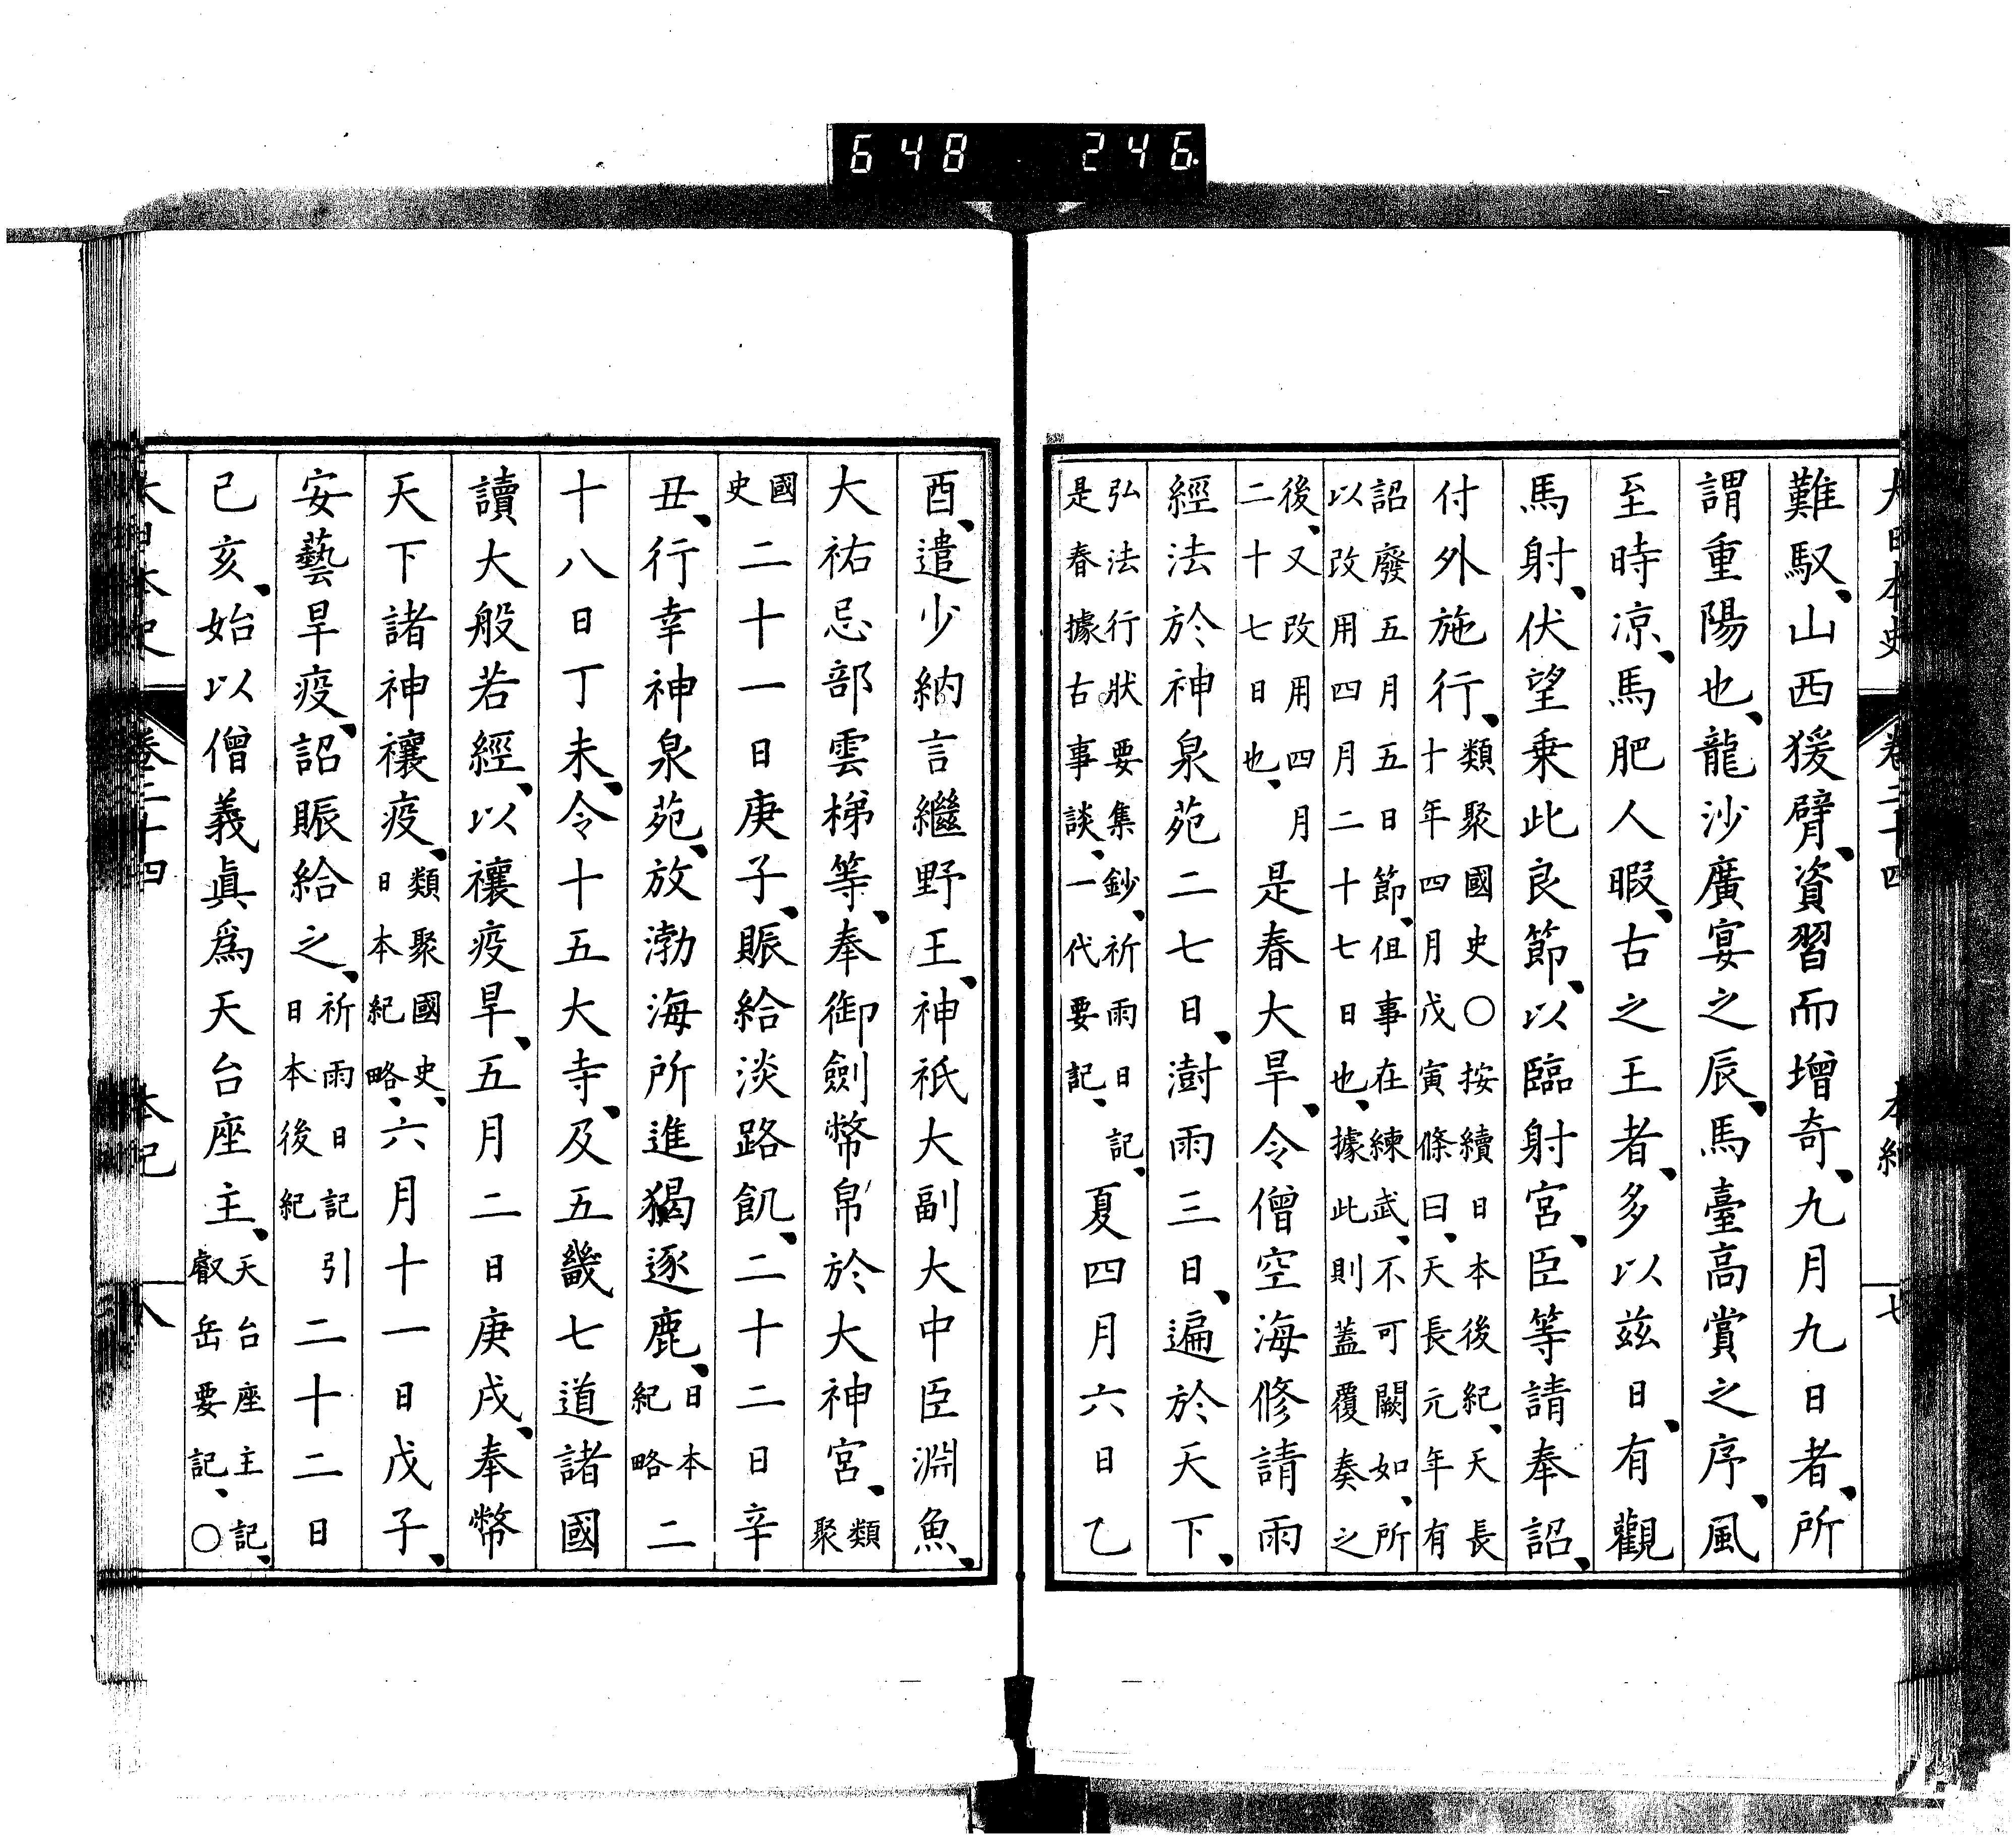 648 246
大日本史 卷二十四 本紀 七
難馭、山西猨臂、資習而增奇、九月九日者、所
謂重陽也、龍沙廣宴之辰、馬臺高賞之序、風
至時凉、馬肥人暇、古之王者、多以茲日、有觀
馬射、伏望乗此良節、以臨射宮、臣等請奉詔、
付外施行、類聚國史〇按續日本後紀、天長十年四月戊寅條曰、天長元年有
詔廢五月五日節、但事在練武、不可闕如、所以改用四月二十七日也、據此則蓋覆奏之
後、又改用四月二十七日也、是春大旱、令僧空海修請雨
經法於神泉苑二七日、澍雨三日、遍於天下、
弘法行狀要集鈔、祈雨日記、是春據古事談、一代要記、夏四月六日乙
酉、遣少納言繼野王、神祇大副大中臣淵魚、
大祐忌部雲梯等、奉御劒幣帛於大神宮、類聚
國史二十一日庚子、賑給淡路飢、二十二日辛
丑、行幸神泉苑、放渤海所進猲逐鹿、日本紀略二
十八日丁未、令十五大寺、及五畿七道諸國
讀大般若經、以禳疫旱、五月二日庚戌、奉幣
天下諸神禳疫、類聚國史、日本紀略、六月十一日戊子、
安藝旱疫、詔賑給之、祈雨日記引日本後紀二十二日
己亥、始以僧義眞爲天台座主、天台座主記、叡岳要記、〇
大日本史 卷二十四 本紀 八